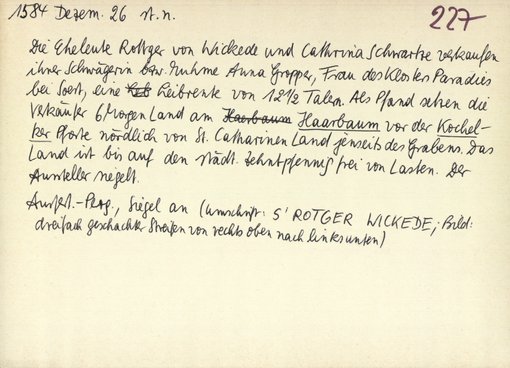 1584 Dezem. 26 st. n.
227
Die Eheleute Rottger von Wickede und Cathrina Schwartze verkaufen
ihrer Schwägerin bzw. Muhme Anna Gropper, Frau des Klosters Paradies
bei Soest, eine Leibrente von 12 1/2 Talern. Als Pfand setzen die
Verkäufer 6 Morgen Land am Haarbaum Haarbaum vor der Köchel-
ker Pforte nördlich von St. Catharinen Land jenseits des Grabens. Das
Land ist bis auf den städt. Zehntpfennig frei von Lasten. Der
Aussteller siegelt.
Ausf.-Perg., Siegel an (Umschrift: S' ROTGER WICKEDE; Bild:
dreifach geschachter Streifen von rechts oben nach links unten)